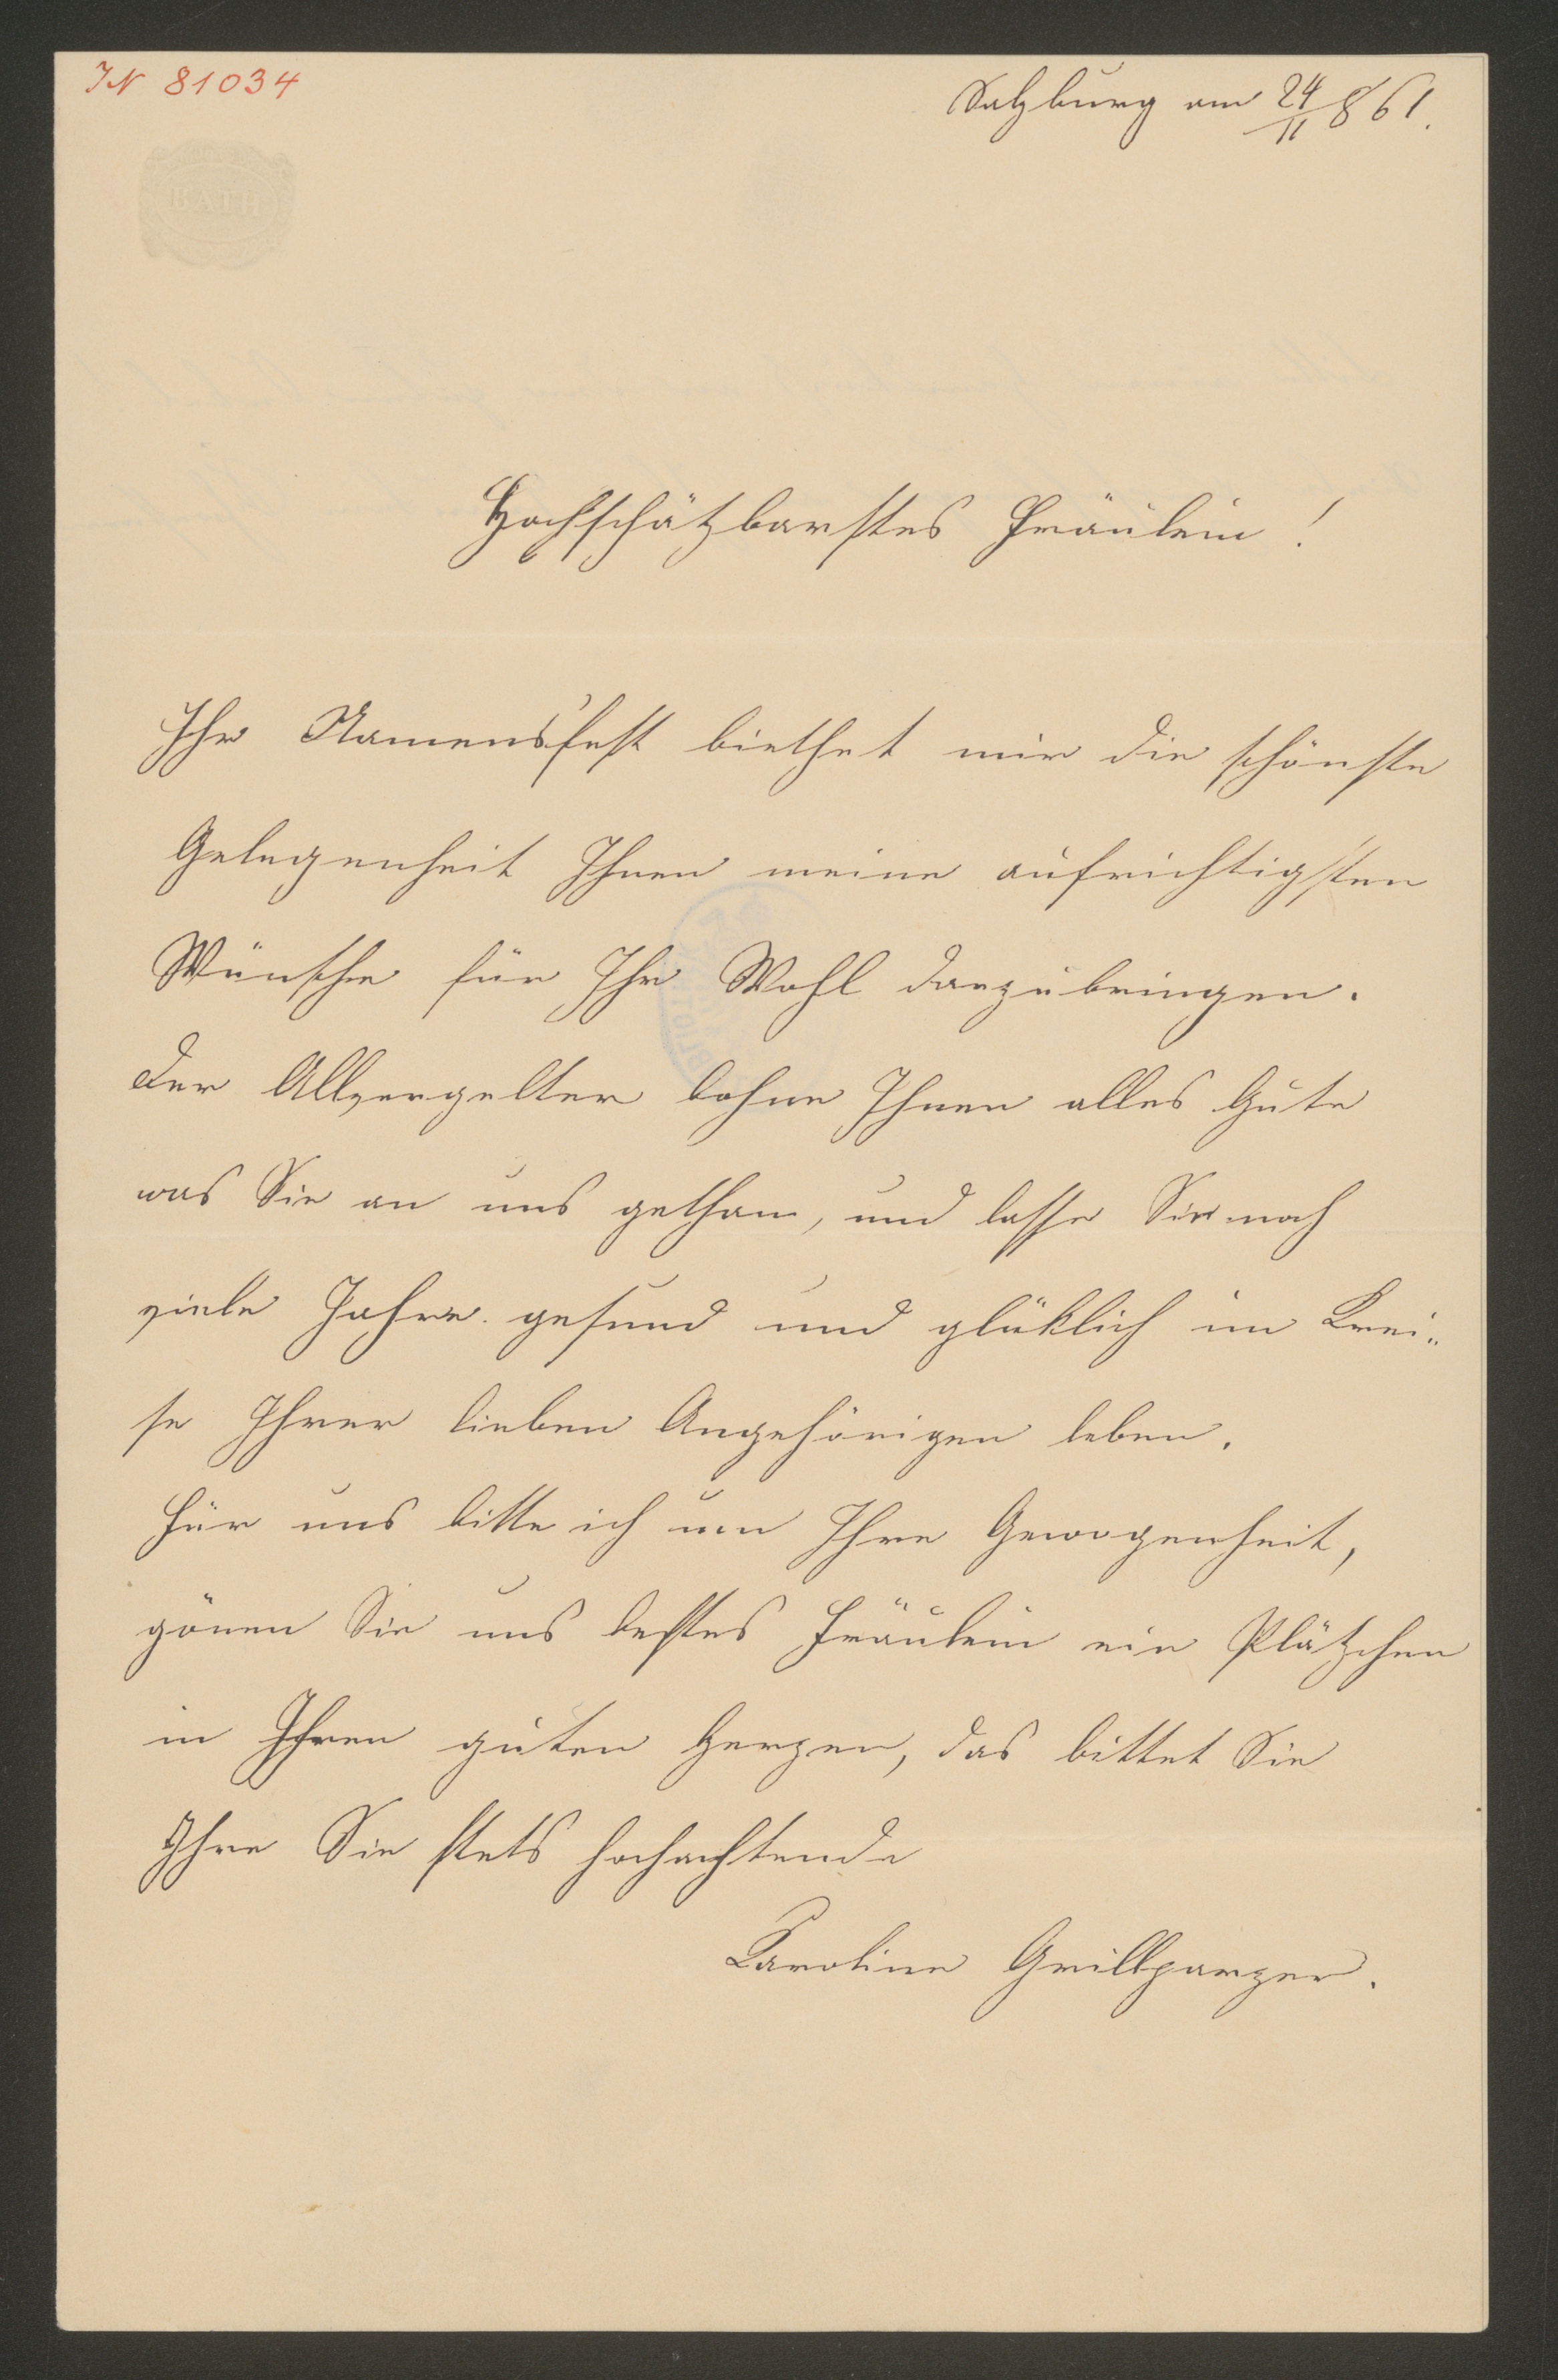 IN 81034
Salzburg am 24/11 861.
BATH
Hochschätzbarstes Fräulein!
Ihr Namensfest biethet mir die schönste
Gelegenheit Ihnen meine aufrichtigsten
Wünsche für Ihr Wohl darzubringen.
Der Allvergelter lohne Ihnen alles Gute
was Sie an uns gethan, und lasse Sie noch
viele Jahre gesund und glüklich im Krei„
se Ihrer lieben Angehörigen leben.
Für uns bitte ich um Ihre Gewogenheit,
gönen Sie uns bestes Fräulein ein Plätzchen
in Ihren guten Herzen, das bittet Sie
Ihre Sie stets hochachtende
Karoline Grillparzer.